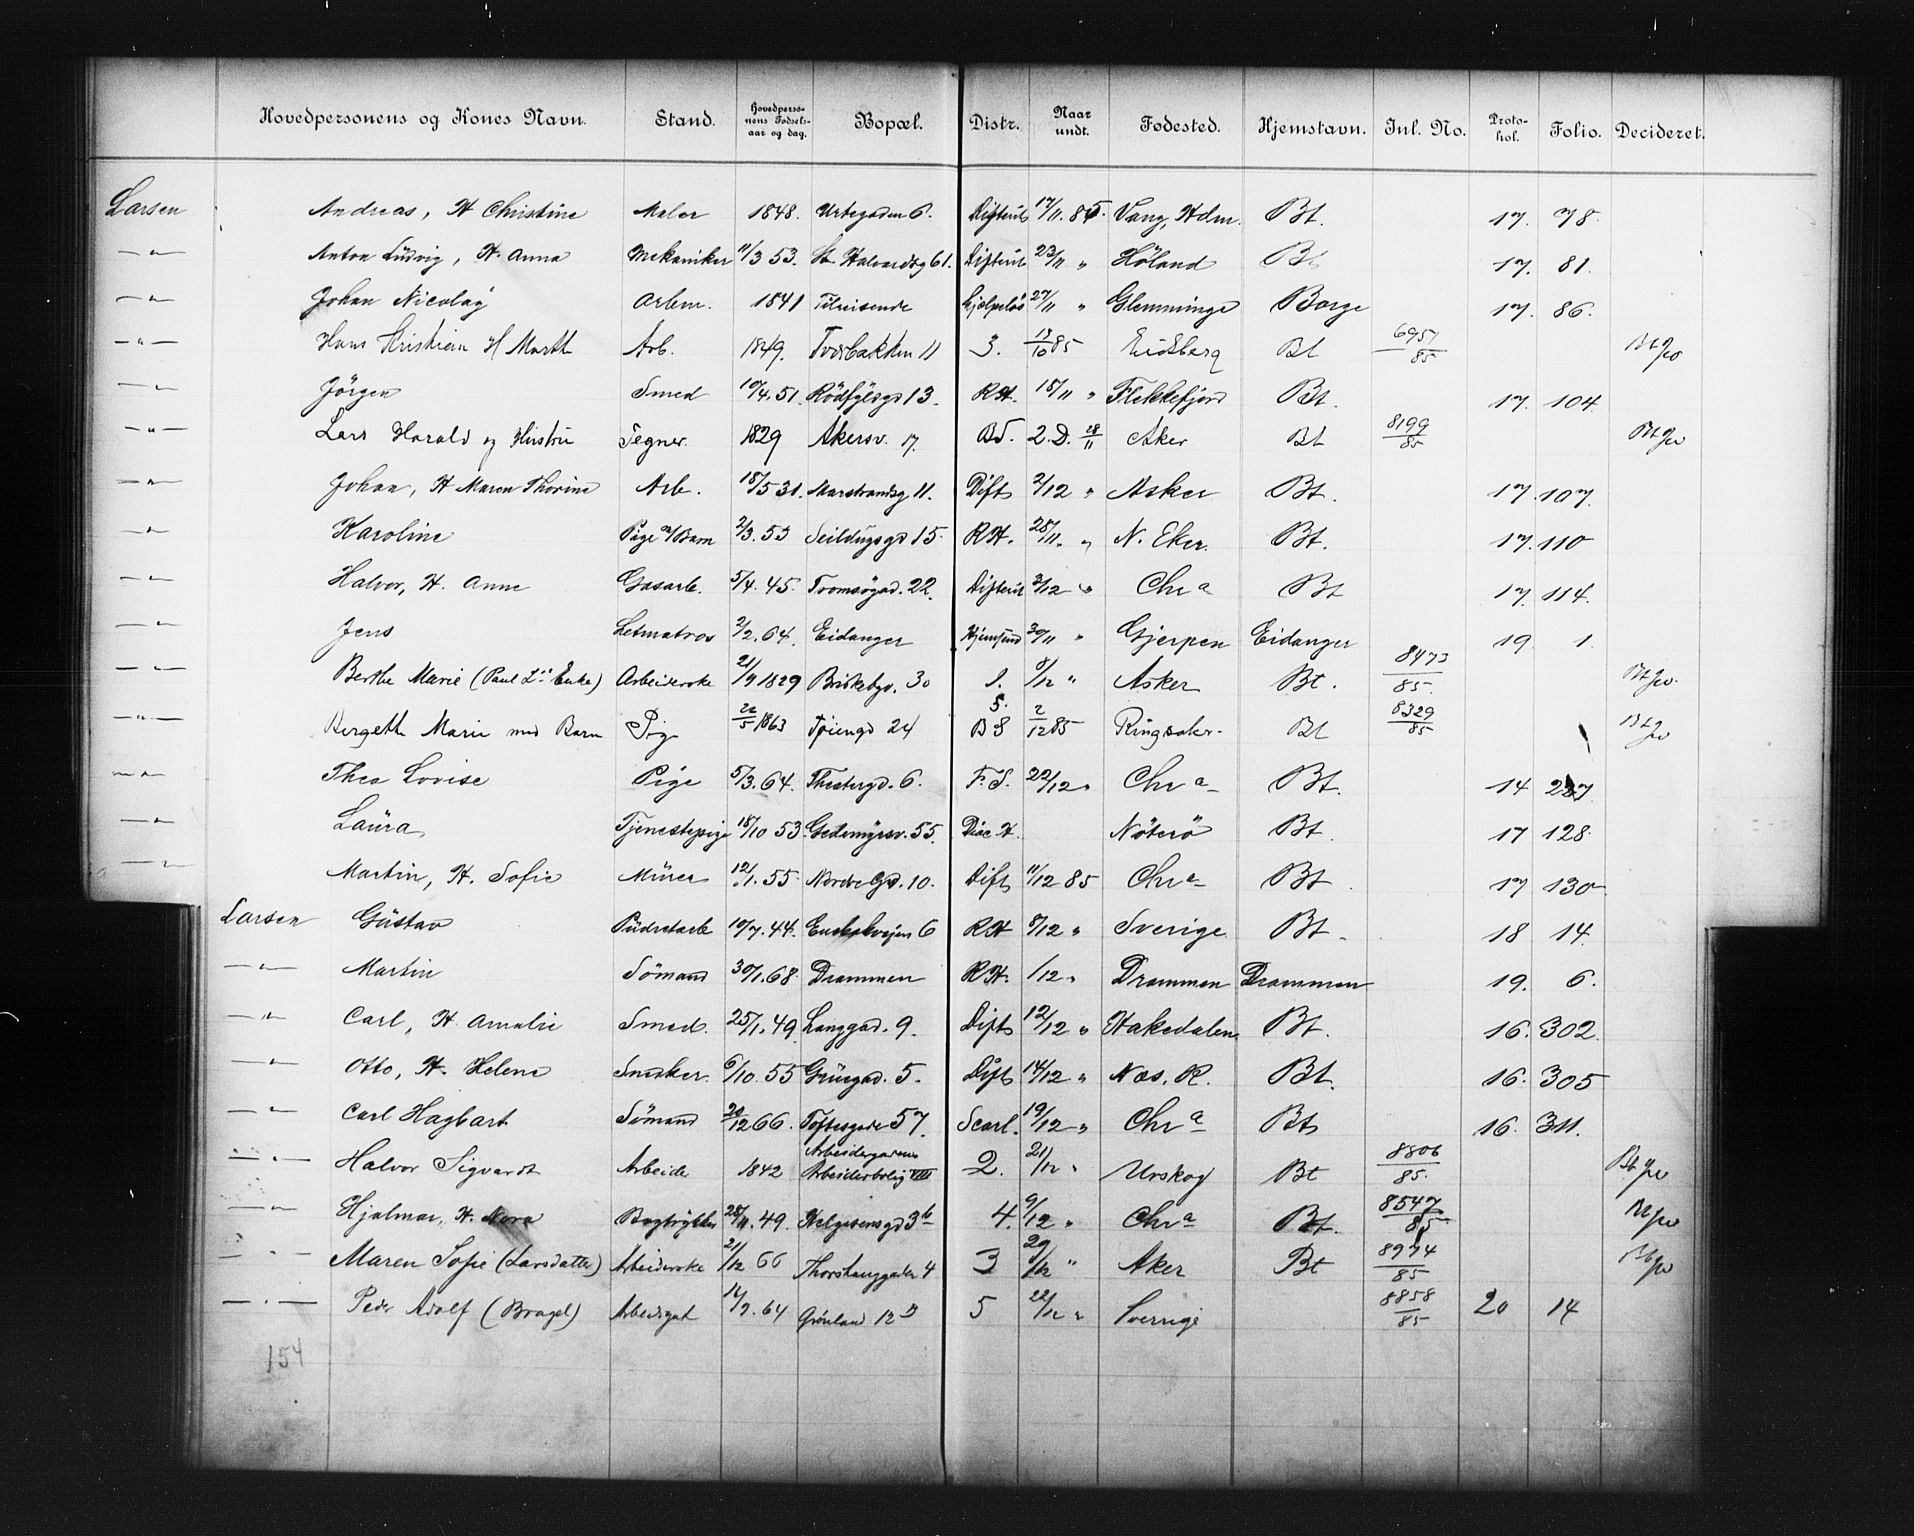 Hovedpersonens og Kones Navn. Stand. Hovedpersonens Fødselsaar og dag. Bopæl. Distr. Naar undt. Fødested. Hjemstavn. Inl. No. Protokol. Folio. Decideret.
Larsen Andreas, H Christine Maler 1848. Urtegaden 6. 17/11. 85. Vang, Hdm. Bt. 17. 78.
—"— Anton Ludvig, H. Anna Mekaniker 11/3 53. St. Halvardsg 61. 23/11 " Höland Bt 17. 81.
—"— Johan Nicolay Arbm. 1841 Tilreisende Hjælpeløs 27/11 " Glemminge Borge 17. 86.
—"— Hans Kristian H Marth Arb. 1849. 11 3. 13/10 85 Eidsberg Bt 6957/85 Bt
—"— Jörgen Smed 10/4. 51. Rödfyldsgd 13. RH. 18/11 " Flekkefjord Bt. 17. 104.
—"— Lars Harald og Segner. 1829 Akersv. 17. BS. 2. D. 28/11 Aker Bt 8199/85 Bt
—"— Johan, H Maren Thorine Arb. 18/5 31. Marstrandsg 11. Dift 2/12 " Asker Bt. 17. 107.
—"— Karoline Pige m/Barn 2/3. 53 Seildugsgd 15. RH. 28/11. " N. Eker. Bt. 17. 110
—"— Halvor, H. Anne Gasarb. 5/4. 45. Tromsögad. 22. 3/12 " Chra Bt 17. 114.
—"— Jens Letmatros 2/2. 64. Eidanger 30/11 " Gjerpen Eidanger 19. 1.
—"— Berthe Marie (Paul Ls Enke) Arbeiderske 21/9 1829 Briskebyv. 30 1. 8/12 " Asker Bt. 8473/85. Bt
—"— Bergeth Marie med Barn Pige 22/5 1863 Töiengd 24 5. BS 2/12 85 Ringsaker. Bt 8329/85 Bt
—"— Thea Lovise Pige 5/3. 64. Theatergd. 6. F. S. 22/12 " Chra Bt. 14 287
—"— Laura Tjenestepige 18/10 53. Gedemyrsv. 55. Diac H. Nöterö Bt. 17 128.
—"— Martin, H. Sofie Mürer 12/1. 55 Nordre Gd. 10. Dift 11/12 85 Chra Bt. 17 130
Larsen Güstav Püdretarb 10/7. 44. 6 RH 8/12 " Sverige Bt. 18 14.
—"— Martin Sömand 30/1. 68. Drammen RH. 1/12 " Drammen Drammen 19. 6.
—"— Carl, H. Amalie Smed. 25/1. 49. Langgad. 9. Dift 12/12 " Hakedalen Bt. 16. 302.
—"— Otto, H. Helene Snedker. 6/10. 55 Grüegad. 5. Dift 14/12 " Nes, R. Bt. 16. 305
—"— Carl Hagbart Sömand 20/12 66. Toftesgade 57. Scarl. 19/12 " Chra Bt 16. 311.
—"— Halvor Sigvardt Arbeider 1842 Arbeidergadens Arbeiderbolig VIII 2. 21/12 " Urskog Bt 8806/85. Bt
—"— Hjalmar, H. Nora Bogtrykker 28/11. 49. Helgesensgd 3b 4. 9/12 " Chra Bt. 8547/85 Bt
—"— Maren Sofie (Larsdatter) Arbeiderske 21/12 66 4 3 29/12 " Aker Bt 8974/85 Bt
—"— Peder Adolf (Bragel) Arbeidsgut 14/9. 64 Grönland 12 5 22/12 " Sverrige 8858/85 20 14
154